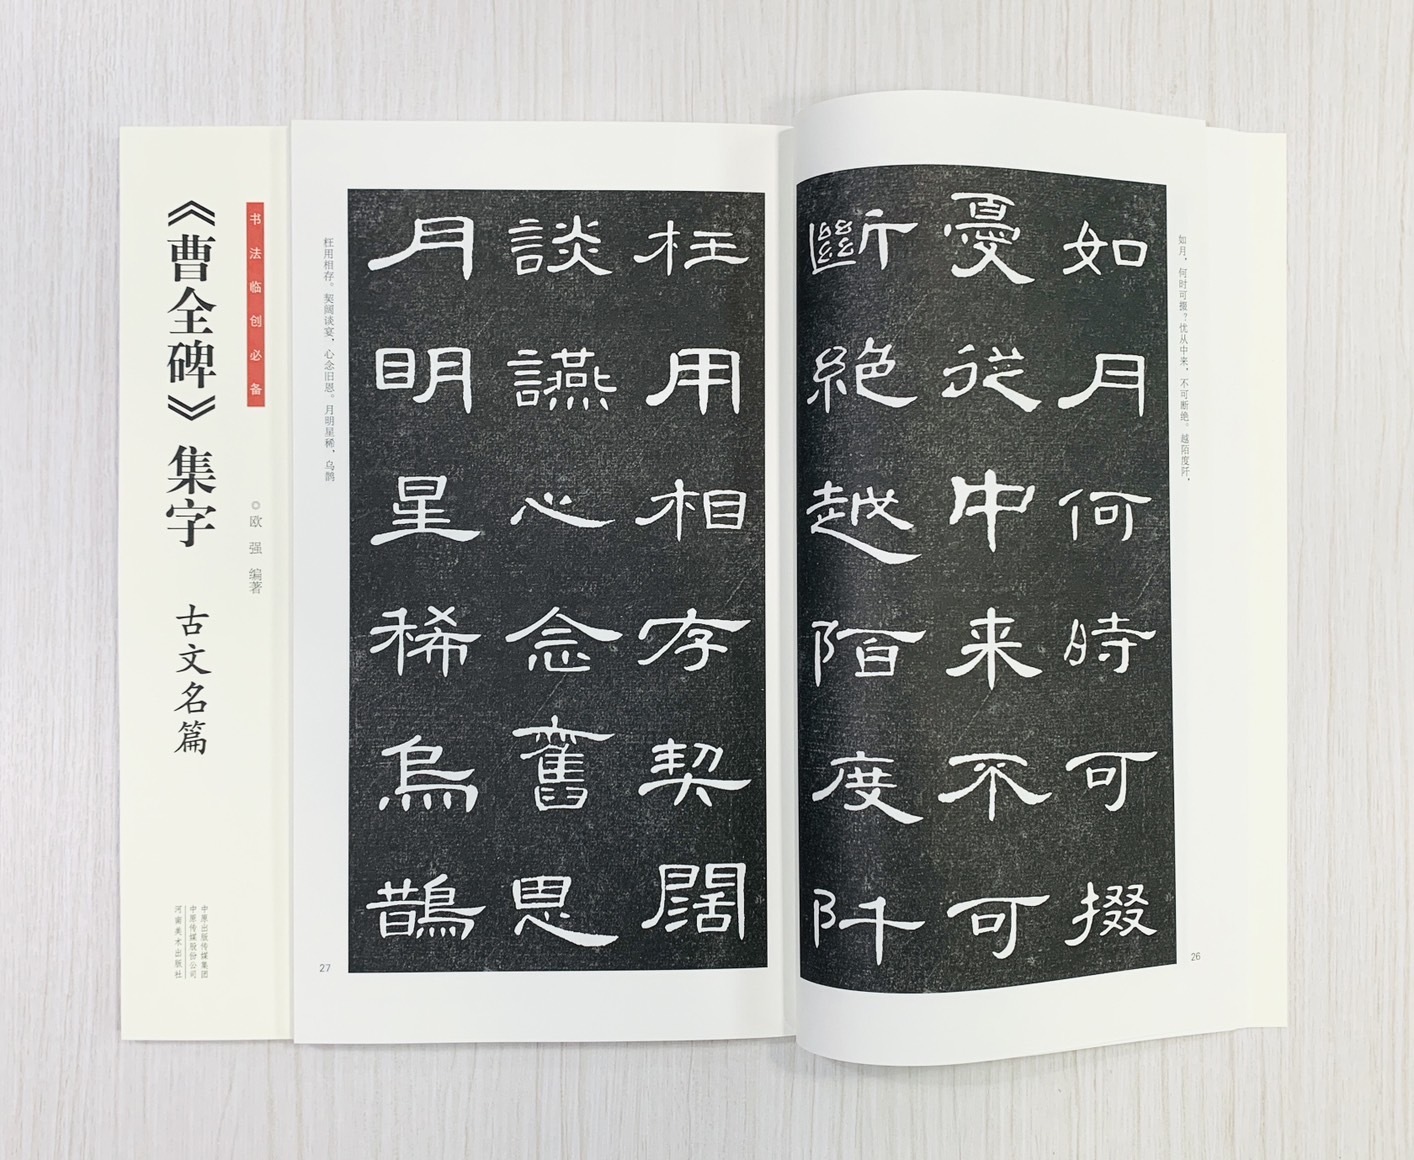 如月何時可掇
憂從中来不可
斷絶越陌度阡
如月，何时可掇？忧从中来，不可断绝。越陌度阡，
26
枉用相存契闊
談讌心念舊恩
月明星稀烏鵲
枉用相存。契阔谈宴，心念旧恩。月明星稀，乌鹊
27
书法临创必备
《曹全碑》集字 古文名篇
◎欧强 编著
中原出版传媒集团
中原传媒股份公司
河南美术出版社